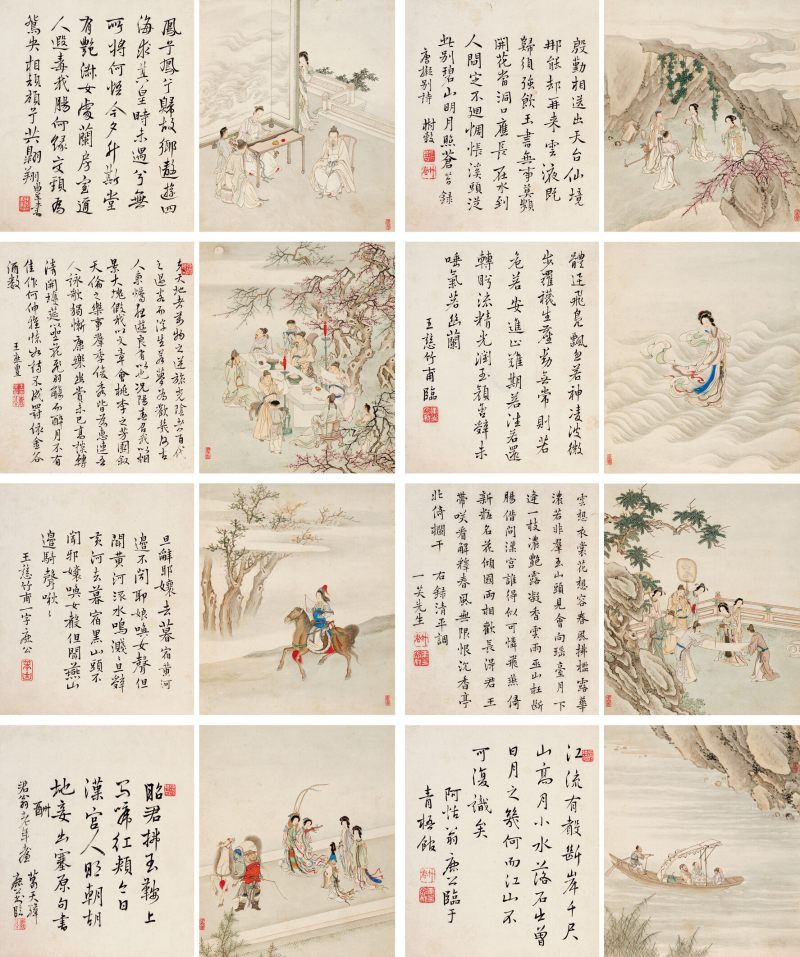 鳳兮鳳兮歸故鄉遨遊四
海求其皇時未遇兮無
所將何悟今夕升斯堂
有艷淑女處蘭房室邇
人遐毒我腸何緣交頸為
鴛央相頡頏兮共翱翔
殷勤相送出天台仙境
那能却再來雲液既
歸須強飲玉書無事莫頻
開花當洞口應長在水到
人間定不迴惆悵溪頭從
此別碧山明月照蒼苔錄
唐擬別詩 樹穀
夫天地者萬物之逆旅光陰者百代
之過客而浮生若夢為歡幾何古
人秉燭夜遊良有以也況陽春召我以烟
景大塊假我以文章會桃李之芳園叙
天倫之樂事群季俊秀皆為惠連吾
人詠歌獨慚康樂幽賞未已高談轉
清開瓊筵以坐花飛羽觴而醉月不有
佳作何伸雅懷如詩不成罰依金谷
酒數
體迅飛鳧飄忽若神凌波微
步羅襪生塵動無常則若
危若安進止難期若往若還
轉盼流精光潤玉顏含辭未
吐氣若幽蘭
王慈竹甫臨
旦辭耶孃去暮宿黃河
邊不聞耶孃喚女聲但
聞黃河流水鳴濺濺旦辭
黃河去暮宿黑山頭不
聞耶孃喚女聲但聞燕山
邊騎聲啾啾
王慈竹甫一字康公
雲想衣裳花想容春風拂檻露華
濃若非羣玉山頭見會向瑤臺月下
逢一枝濃艷露凝香雲雨巫山枉斷
腸借問漢宮誰得似可憐飛燕倚
新粧名花傾國兩相歡長得君王
帶笑看解釋春風無限恨沉香亭
北倚欄干 右錄清平調
一笑先生
昭君拂玉鞍上
馬啼紅頰今日
漢宮人明朝胡
地妾出塞原句書
酬
江流有聲斷岸千尺
山高月小水落石出曾
日月之幾何而江山不
可復識矣
翁康公臨于
青極館